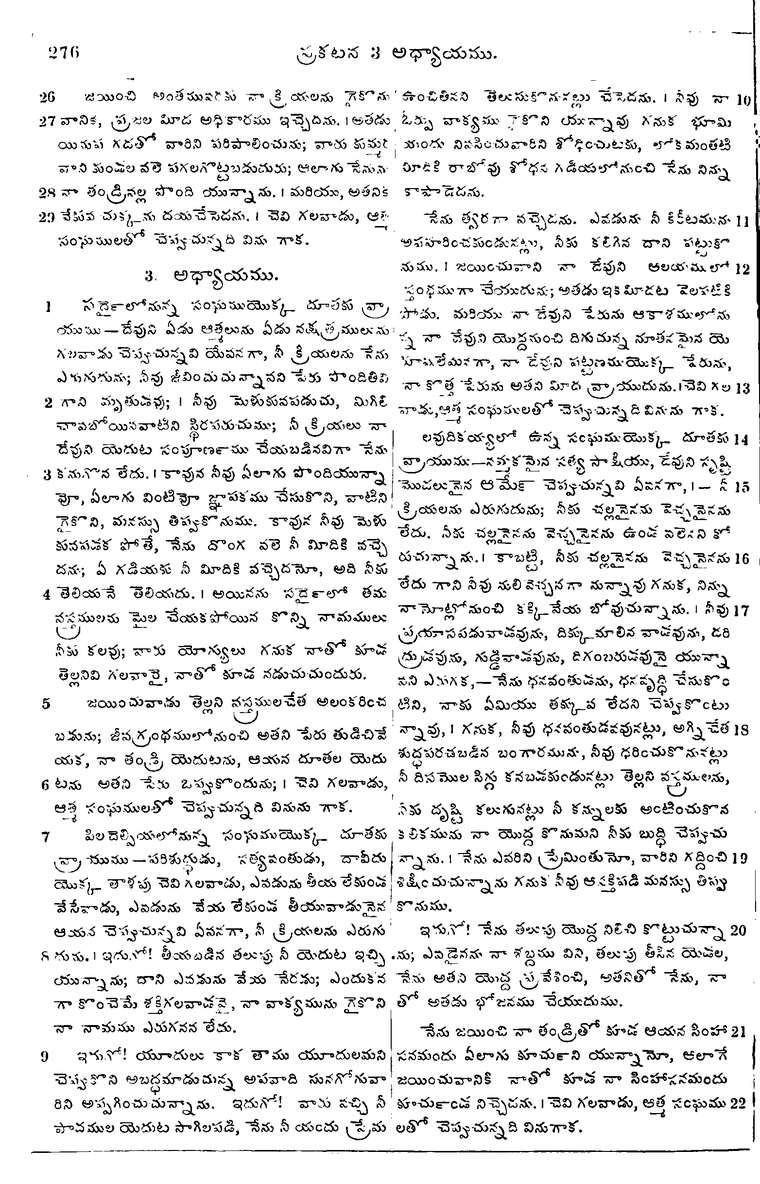 276 ప్రకటన 3 అధ్యాయము.
26 జయించి అంతమువరకు నా క్రియలను గైకొను
27 వానికి, ప్రజల మీద అధికారము ఇచ్చెదను. । అతడు
యినుప గడతో వారిని పరిపాలించును; వారు కుమ్మరి
వాని కుండల వలె పగలగొట్టబడుదురు; ఆలాగు నేనును
28 నా తండ్రివల్ల పొంది యున్నాను. । మరియు, అతనికి
29 వేకువ చుక్కను దయచేసెదను. । చెవి గలవాడు, ఆత్మ
సంఘములతో చెప్పుచున్నది విను గాక.
3. అధ్యాయము.
1 సర్దైలోనున్న సంఘముయొక్క దూతకు వ్రా
యుము — దేవుని ఏడు ఆత్మలును ఏడు నక్షత్రములును
గలవాడు చెప్పుచున్నవి యేవనగా, నీ క్రియలను నేను
ఎరుగుదును; నీవు జీవించుచున్నావని పేరు పొందితివి
2 గాని మృతుడవు; । నీవు మెళుకువపడుచు, మిగిలి
చావబోయినవాటిని స్థిరపరుచుము; నీ క్రియలు నా
దేవుని యెదుట సంపూర్ణము చేయబడినవిగా నేను
3 కనుగొన లేదు. । కావున నీవు ఏలాగు పొందియున్నా
వో, ఏలాగు వింటివో జ్ఞాపకము చేసుకొని, వాటిని
గైకొని, మనస్సు తిప్పుకొనుము. కావున నీవు మెళు
కువపడక పోతే, నేను దొంగ వలె నీ మీదికి వచ్చె
దను; ఏ గడియకు నీ మీదికి వచ్చెదమో, అది నీకు
4 తెలియనే తెలియదు. । అయినను సర్దైలో తమ
వస్త్రములను మైల చేయకపోయిన కొన్ని నామములు
నీకు కలవు; వారు యోగ్యులు గనుక నాతో కూడ
తెల్లనివి గలవారై, నాతో కూడ నడుచుచుందురు.
5 జయించువాడు తెల్లని వస్త్రములచేత అలంకరించ
బడును; జీవగ్రంథములోనుంచి అతని పేరు తుడిచివే
యక, నా తండ్రి యెదుటను, ఆయన దూతల యెదు
6 టను అతని పేరు ఒప్పుకొందును; । చెవి గలవాడు,
ఆత్మ సంఘములతో చెప్పుచున్నది వినును గాక.
7 పిలదెల్ఫియలోనున్న సంఘముయొక్క దూతకు
వ్రాయుము — పరిశుద్ధుడు, సత్యవంతుడు, దావీదు
యొక్క తాళపు చెవి గలవాడు, ఎవడును తీయ లేకుండ
వేసేవాడు, ఎవడును వేయ లేకుండ తీయువాడునైన
ఆయన చెప్పుచున్నవి ఏవనగా, నీ క్రియలను ఎరుగు
8 గును. । ఇదుగో! తీయబడిన తలుపు నీ యెదుట ఇచ్చి
యున్నాను; దాని ఎవడును వేయ నేరడు; ఎందుకన
గా కొంచెమే శక్తిగలవాడవై, నా వాక్యమును గైకొని
నా నామము ఎరుగనన లేదు.
9 ఇదుగో! యూదులు కాక తాము యూదులమని
చెప్పుకొని అబద్ధమాడుచున్న అపవాది సునగోగువా
రిని అప్పగించుచున్నాను. ఇదుగో! వారు వచ్చి నీ
పాదముల యెదుట సాగిలపడి, నేను నీ యందు ప్రేమ
ఉంచితినని తెలుసుకొనునట్లు చేసెదను. । నీవు నా 10
ఓర్పు వాక్యము గైకొని యున్నావు గనుక భూమి
యందు నివసించువారిని శోధించుటకు, లోకమంతటి
మీదికి రాబోవు శోధన గడియలోనుంచి నేను నిన్ను
కాపాడెదను.
నేను త్వరగా వచ్చెదను. ఎవడును నీ కిరీటమును 11
అపహరించకుండునట్లు, నీకు కలిగిన దాని పట్టుకొ
నుము. । జయించువాని నా దేవుని ఆలయములో 12
స్తంభముగా చేయుదును; అతడు ఇకమీదట వెలపటికి
పోడు. మరియు నా దేవుని పేరును ఆకాశములోను
న్న నా దేవుని యొద్దనుంచి దిగుచున్న నూతనమైన యె
రూషలేమనగా, నా దేవుని పట్టణముయొక్క పేరును,
నా కొత్త పేరును అతని మీద వ్రాయుదును. । చెవి గల 13
వాడు, ఆత్మ సంఘములతో చెప్పుచున్నది వినును గాక.
లవుదికయ్యలో ఉన్న సంఘముయొక్క దూతకు 14
వ్రాయుము — నమ్మకమైన సత్య సాక్షియు, దేవుని సృష్టి
మొదలునైన ఆమేన్ చెప్పుచున్నవి ఏవనగా, । — నీ 15
క్రియలను ఎరుగుదును; నీకు చల్లనైనను వెచ్చనైనను
లేదు. నీకు చల్లనైనను వెచ్చనైనను ఉండ వలెనని కో
రుచున్నాను. । కాబట్టి, నీకు చల్లనైనను వెచ్చనైనను 16
లేదు గాని నీవు నులివెచ్చనగా నున్నావు గనుక, నిన్ను
నా నోట్లోనుంచి కక్కివేయ బోవుచున్నాను. । నీవు 17
ప్రయాసపడువాడవును, దిక్కుమాలిన వాడవును, దరి
ద్రుడవును, గుడ్డివాడవును, దిగంబరుడవునై యున్నా
వని ఎరుగక, — నేను ధనవంతుడను, ధనవృద్ధి చేసుకొం
టిని, నాకు ఏమియు తక్కువ లేదని చెప్పుకొంటు
న్నావు, । గనుక, నీవు ధనవంతుడవవునట్లు, అగ్ని చేత 18
శుద్ధపరచబడిన బంగారమును, నీవు ధరించుకొనునట్లు
నీ దిసమొల సిగ్గు కనబడకుండునట్లు తెల్లని వస్త్రములను,
నీకు దృష్టి కలుగునట్లు నీ కన్నులకు అంటించుకొన
కలికమును నా యొద్ద కొనుమని నీకు బుద్ధి చెప్పుచు
న్నాను. । నేను ఎవరిని ప్రేమింతునో, వారిని గద్దించి 19
శిక్షించుచున్నాను గనుక నీవు ఆసక్తిపడి మనస్సు తిప్పు
కొనుము.
ఇదుగో! నేను తలుపు యొద్ద నిలిచి కొట్టుచున్నా 20
ను; ఎవడైనను నా శబ్దము విని, తలుపు తీసిన యెడల,
నేను అతని యొద్ద ప్రవేశించి, అతనితో నేను, నా
తో అతడు భోజనము చేయుదుము.
నేను జయించి నా తండ్రితో కూడ ఆయన సింహా 21
సనమందు ఏలాగు కూర్చుని యున్నానో, ఆలాగే
జయించువానికి నాతో కూడ నా సింహాసనమందు
కూర్చుండ నిచ్చెదను. । చెవి గలవాడు, ఆత్మ సంఘము 22
లతో చెప్పుచున్నది వినుగాక.